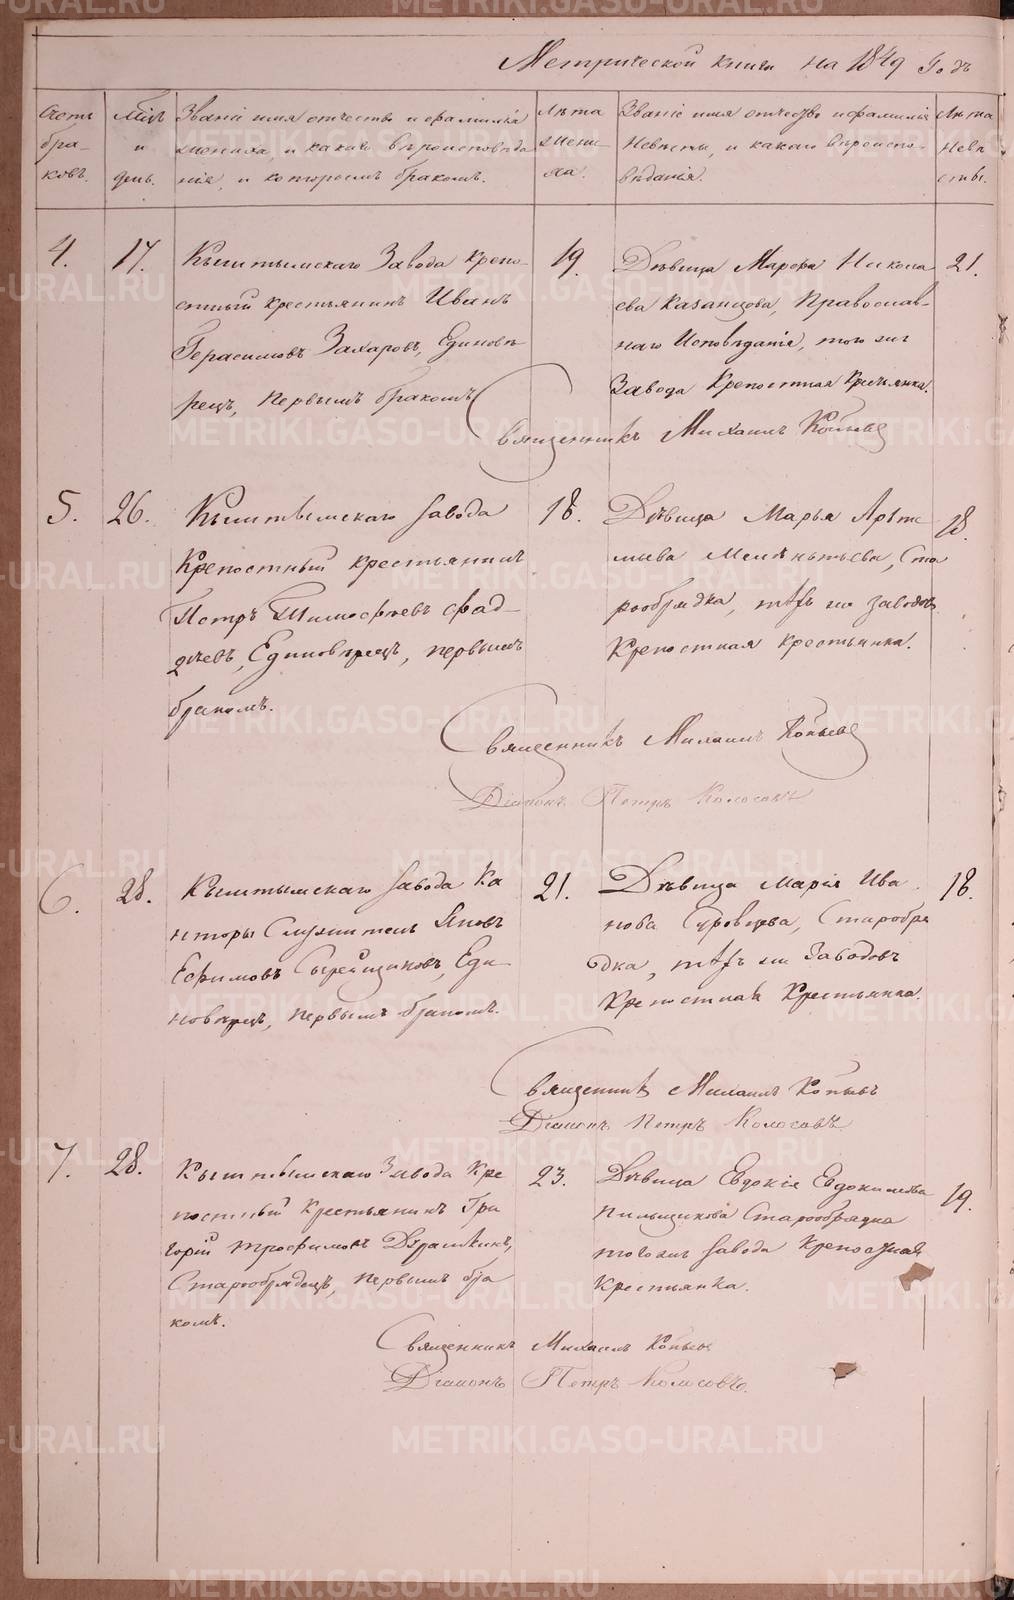 Метрической книги на 1849 Годъ
Счетъ браковъ.
Мѣсяцъ и день.
Званіе имя отчество и фамилія
жениха, и какого вѣроисповѣда
нія, и которымъ бракомъ.
Лѣта жениха.
Званіе имя отчество и фамилія
Невѣсты, и какого вѣроиспо-
вѣданія.
Лѣта Невѣсты.
4.
17.
Кыштымскаго Завода крепо-
стный крестьянинъ Иванъ
Герасимовъ Захаровъ, Единовѣ
рецъ, первымъ бракомъ
19.
Дѣвица Марфа Никола
ева Казанцова, Православ-
наго Исповѣданія, того же
Завода Крепостная Крестьянка.
21.
Священникъ Михаилъ Копьевъ
5.
26.
Кыштымскаго завода
Крепостный крестьянинъ
Петръ Тимофеевъ Фад-
дѣевъ, Единовѣрецъ, первымъ
бракомъ.
18.
Дѣвица Марья Артѣ
мьева Мелѣнтьева, Ста
рообрядка, тѣхъ же заводовъ
Крепостная крестьянка.
18.
Священникъ Михаилъ Копьевъ
Діаконъ Петръ Колосовъ
6.
28.
Кыштымскаго завода Ка
нторы Служитель Яковъ
Ефимовъ Сырейщиковъ, Еди-
новѣрецъ, первымъ бракомъ.
21.
Дѣвица Марія Ива
нова Суровцева, Старообря
дка, тѣхъ же Заводовъ
Крепостная Крестьянка.
18.
Священникъ Михаилъ Копьевъ
Діаконъ Петръ Колосовъ
7.
28.
Кыштымскаго Завода Кре
постный Крестьянинъ Гри
горій Трофимовъ Дурашкинъ,
Старообрядецъ, первымъ бра
комъ.
23.
Дѣвица Евдокія Евдокимова
Пильщикова Старообрядка
того же завода Крепостная
Крестьянка.
19.
Священникъ Михаилъ Копьевъ
Діаконъ Петръ Колосовъ.
METRIKI.GASO-URAL.RU